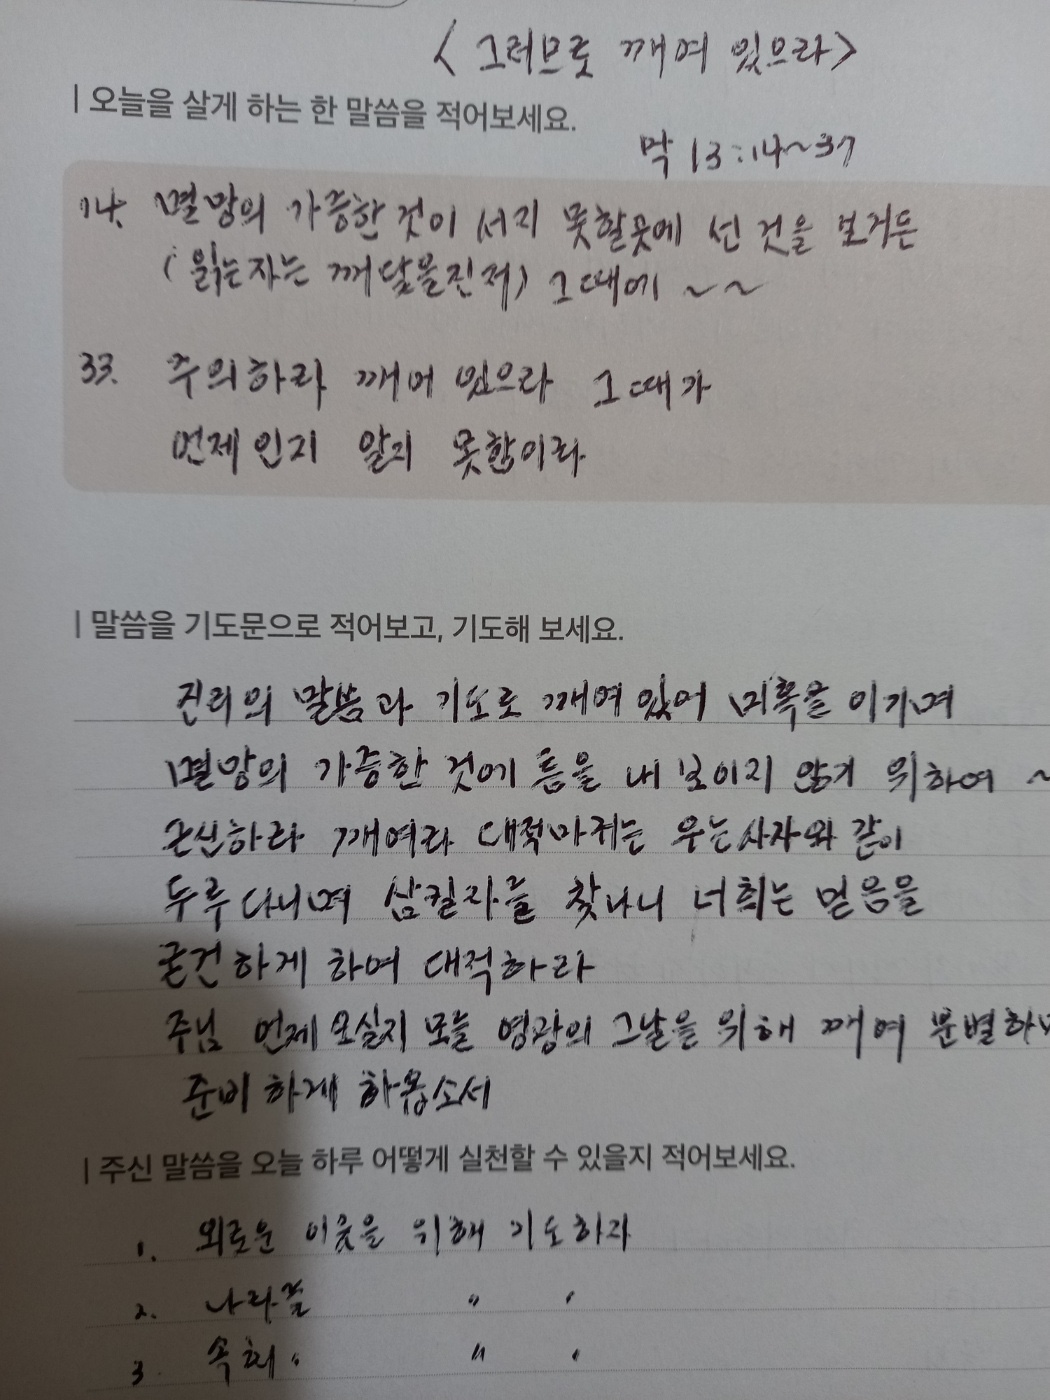 <그러므로 깨여 있으라>
| 오늘을 살게 하는 한 말씀을 적어보세요.
막 13:14~37
14. 멸망의 가증한 것이 서지 못할곳에 선 것을 보거든
(읽는자는 깨닫을진저) 그때에 ~~
33. 주의하라 깨어 있으라 그때가
언제인지 알지 못함이라
| 말씀을 기도문으로 적어보고, 기도해 보세요.
진리의 말씀과 기도로 깨여있어 미혹을 이기며
멸망의 가증한 것에 틈을 내 보이지 않기 위하여 ~
근신하라 깨여라 대적마귀는 우는사자와 같이
두루 다니며 삼킬자를 찾나니 너희는 믿음을
굳건하게 하여 대적하라
주님 언제 오실지 모늘 영광의 그날을 위해 깨여 분별하며
준비하게 하옵소서
| 주신 말씀을 오늘 하루 어떻게 실천할 수 있을지 적어보세요.
1. 외로운 이웃을 위해 기도하자
2. 나라를 〃 〃
3. 속회. 〃 〃